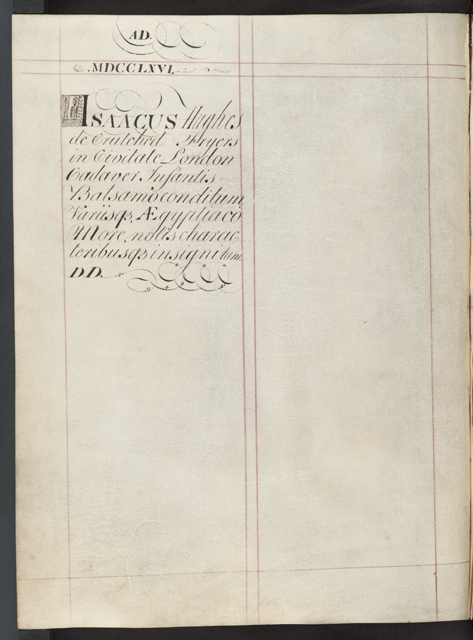 AD.
MDCCLXVI.
ISAACUS Hughes
de Crutched Fryers
in Civitate London
Cadaver Infantis
Balsamo conditum
Variisq; Ægyptiaco
More, notis charac-
teribusq; insignitum
D.D.